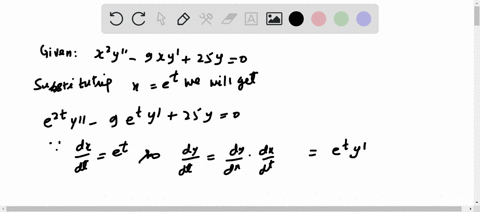 Given: x²y'' - 9xy' + 25y = 0
Substituting x = e^t we will get
e^2t y'' - 9 e^t y' + 25y = 0
∵ dx/dt = e^t so dy/dt = dy/dx · dx/dt = e^t y'